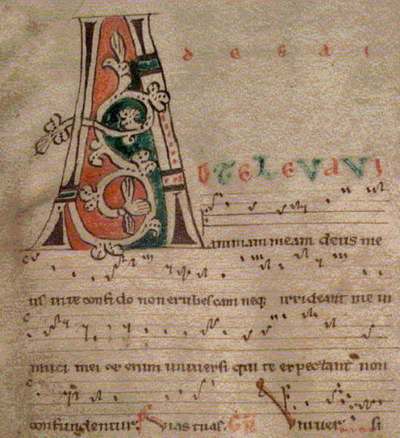 AD TE LEVAVI
animam meam deus me
us in te confido non erubescam neq; irrideant me in
imici mei et enim universi qui te expectant non
confundentur. Vias tuas. Univer si